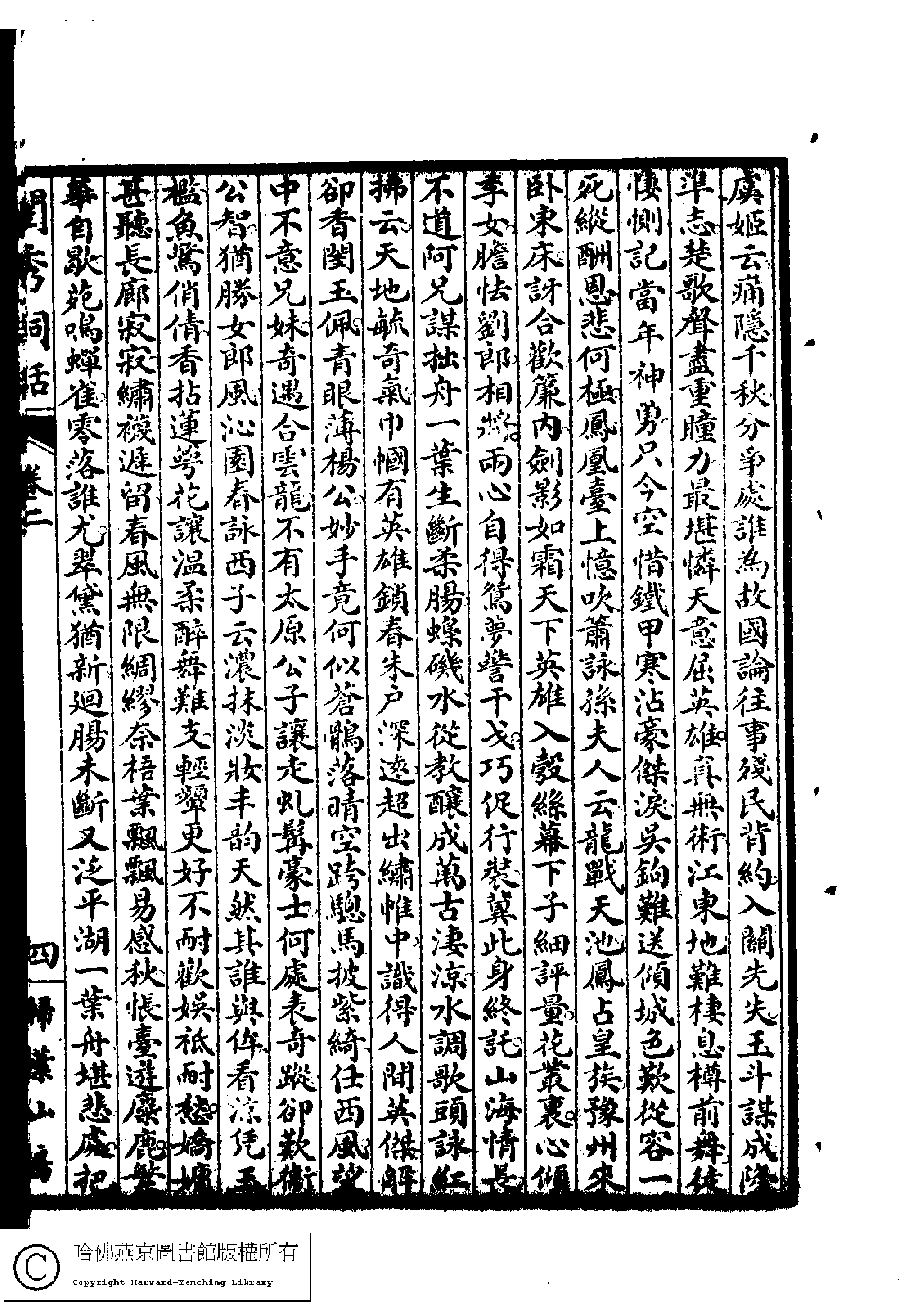 虞姬云痛隱千秋分爭處誰為故國論往事殘民背約入關先失玉斗謀成隆
準志楚歌聲盡重瞳力最堪憐天意屈英雄真無術江東地難棲息樽前舞徒
悽惻記當年神勇只今空惜鐵甲寒沾豪傑淚吳鉤難送傾城色歎從容一
死縱酬恩悲何極鳳凰臺上憶吹簫詠孫夫人云龍戰天池鳳占皇族豫州來
卧東床訝合歡簾內劍影如霜天下英雄入彀絲幕下子細評量花叢裏心傾
季女膽怯劉郎相將兩心自得鴛夢讐干戈巧促行裝冀此身終託山海情長
不道阿兄謀拙舟一葉生斷柔腸蟂磯水從教釀成萬古淒涼水調歌頭詠紅
拂云天地毓奇氣巾幗有英雄鎖春朱戶深邃超出繡帷中識得人間英傑解
卻香閨玉佩青眼薄楊公妙手竟何似蒼鶻落晴空跨驄馬披紫綺任西風望
中不意兄妹奇遇合雲龍不有太原公子讓走虬髯豪士何處表奇蹤卻歎衞
公智猶勝女郎風沁園春詠西子云濃抹淡妝丰韵天然其誰與侔看涼凭玉
檻魚驚俏倩香拈蓮萼花讓溫柔醉舞難支輕顰更好不耐歡娛祗耐愁嬌慵
甚聽長廊寂寂繡襪遲留春風無限綢繆奈梧葉飄飄易感秋悵臺遊麋鹿繁
華自歇苑鳴蟬雀零落誰尤翠黛猶新迴腸未斷又泛平湖一葉舟堪悲處把
閨秀詞話 卷二 四 掃葉山房
哈佛燕京圖書館版權所有
Copyright Harvard-Yenching Library